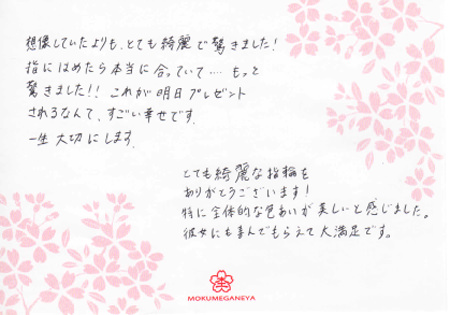 想像していたよりも、とても綺麗で驚きました!
指にはめたら本当に合っていて‥‥もっと
驚きました!! これが明日プレゼント
されるなんて、すごい幸せです。
一生大切にします。
とても綺麗な指輪を
ありがとうございます!
特に全体的な色あいが美しいと感じました。
彼女にも喜んでもらえて大満足です。
MOKUMEGANEYA